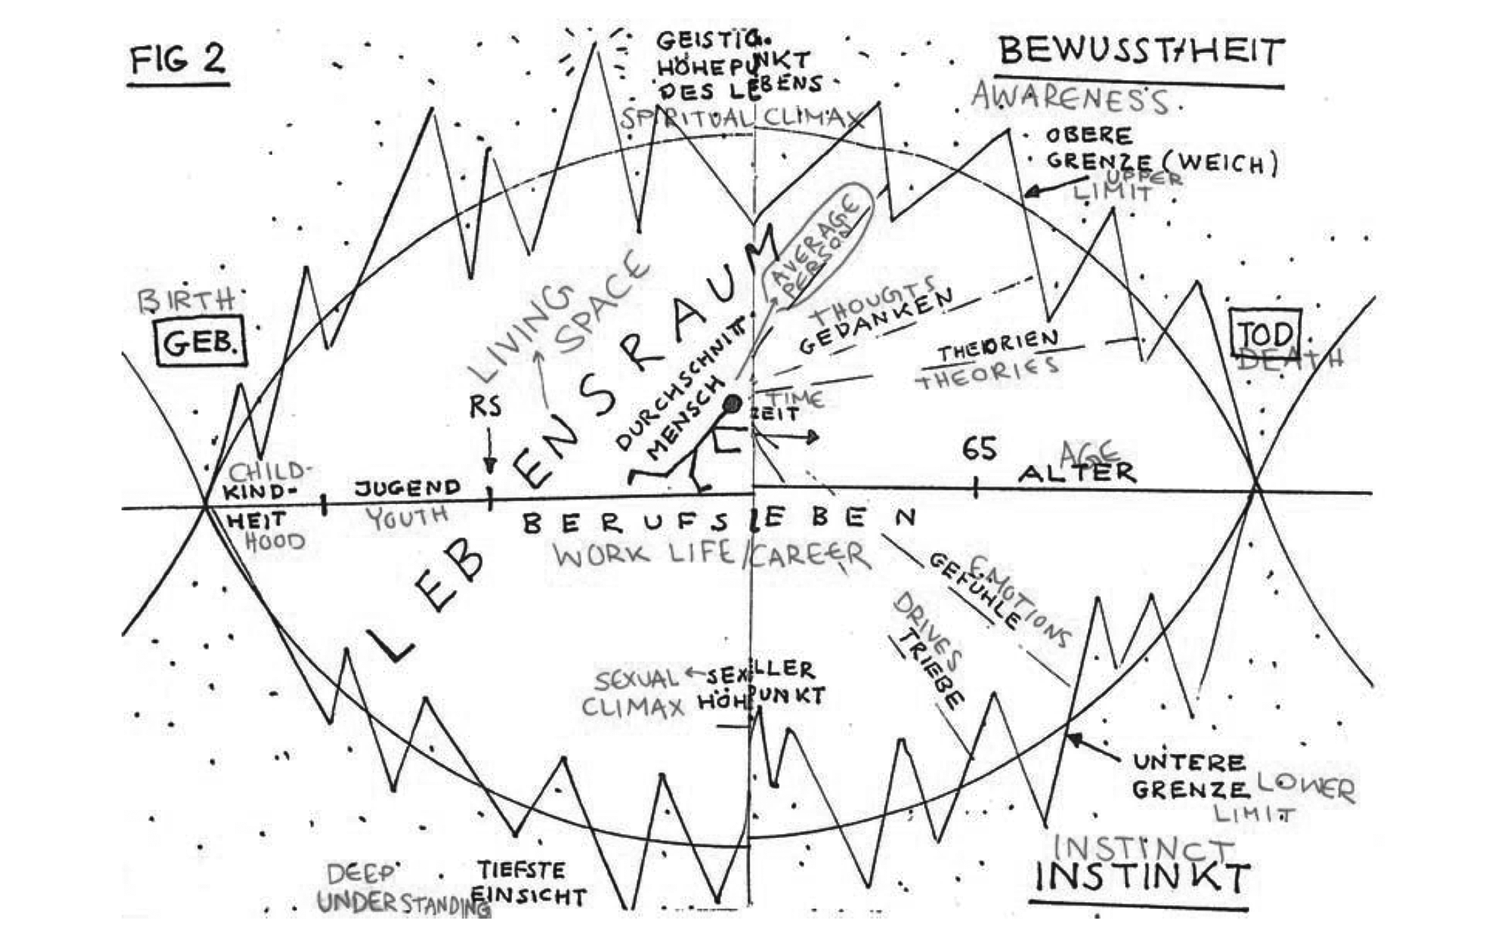 FIG 2
GEISTIG.
HÖHEPUNKT
DES LEBENS
SPIRITUAL CLIMAX
BEWUSSTHEIT
AWARENESS
OBERE
GRENZE (WEICH)
UPPER
LIMIT
BIRTH
GEB.
LIVING
SPACE
AVERAGE
PERSON
THOUGTS
GEDANKEN
THEORIEN
THEORIES
TOD
DEATH
DURCHSCHNITT
MENSCH
TIME
ZEIT
RS
65
AGE
ALTER
CHILD-
KIND-
HEIT
HOOD
JUGEND
YOUTH
BERUFSLEBEN
WORK LIFE/CAREER
LEBENSRAUM
EMOTIONS
GEFÜHLE
DRIVES
TRIEBE
SEXUAL
CLIMAX
SEXELLER
HÖHPUNKT
UNTERE
GRENZE
LOWER
LIMIT
INSTINCT
INSTINKT
DEEP
UNDERSTANDING
TIEFSTE
EINSICHT